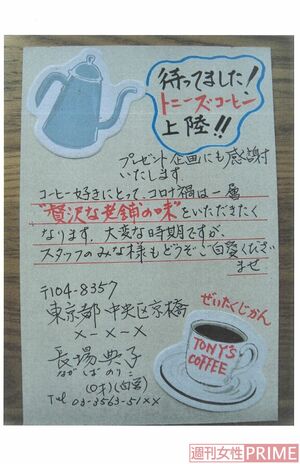 待ってました!
トニーズコーヒー
上陸!!
プレゼント企画にも感謝
いたします。
コーヒー好きにとって、コロナ禍は一層
"贅沢な老舗の味"をいただきたく
なります。大変な時期ですが、
スタッフのみな様もどうぞご自愛ください
ませ
〒104-8357
東京都中央区京橋
×-×-×
長場典子
ながばのりこ
Tel 03-3563-51××
ぜいたくじかん
TONY'S
COFFEE
週刊女性PRIME